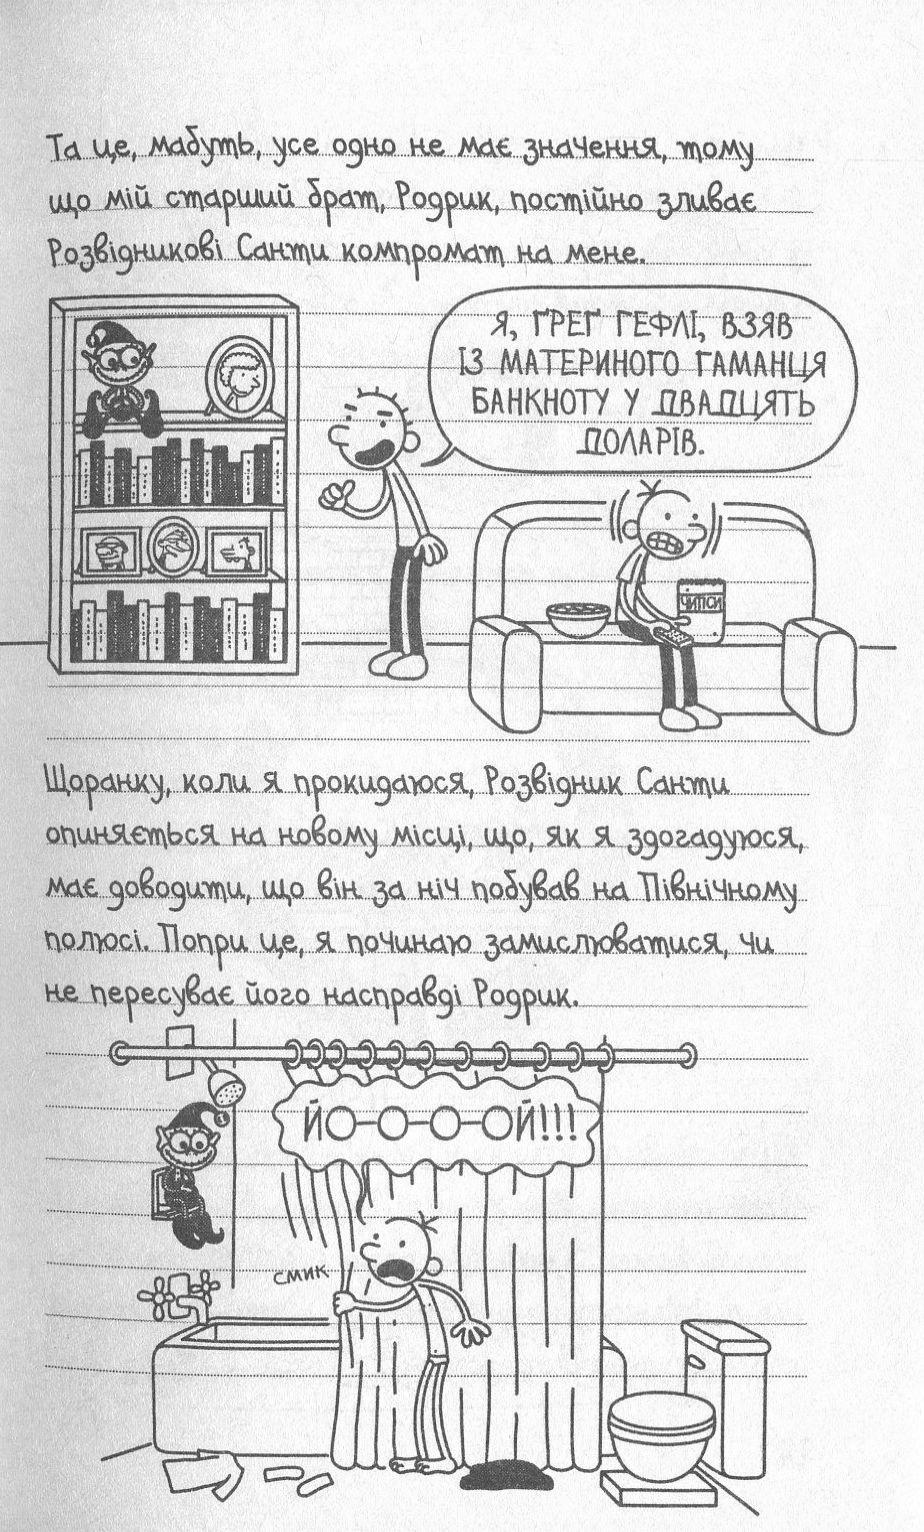 Та це, мабуть, усе одно не має значення, тому
що мій старший брат, Родрик, постійно зливає
Розвідникові Санти компромат на мене.
Я, ҐРЕҐ ГЕФЛІ, ВЗЯВ
ІЗ МАТЕРИНОГО ГАМАНЦЯ
БАНКНОТУ У ДВАДЦЯТЬ
ДОЛАРІВ.
ЧИПСИ
Щоранку, коли я прокидаюся, Розвідник Санти
опиняється на новому місці, що, як я здогадуюся,
має доводити, що він за ніч побував на Північному
полюсі. Попри це, я починаю замислюватися, чи
не пересуває його насправді Родрик.
ЙО-О-О-ОЙ!!!
СМИК